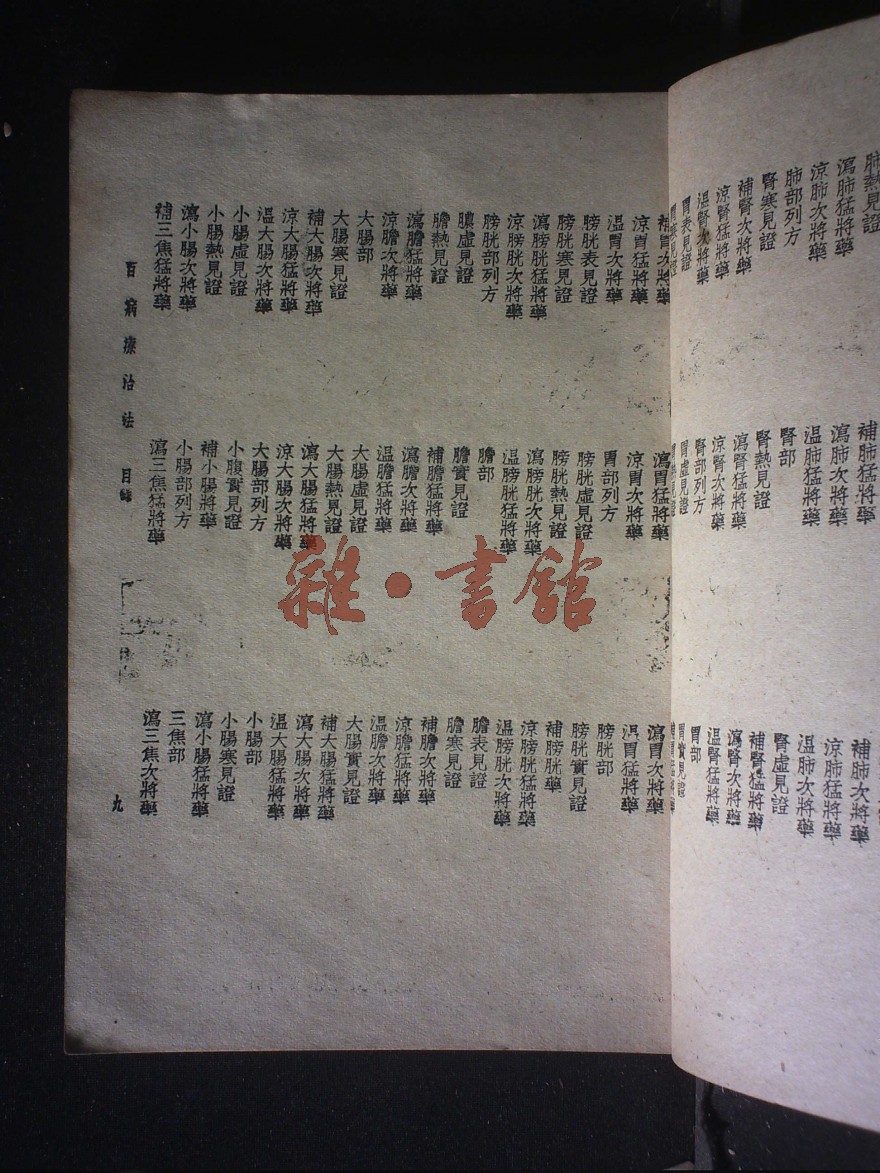 肺熱見證
補肺猛將藥
補肺次將藥
瀉肺猛將藥
瀉肺次將藥
涼肺猛將藥
涼肺次將藥
温肺猛將藥
温肺次將藥
肺部列方
腎部
腎虛見證
腎寒見證
腎熱見證
補腎猛將藥
補腎次將藥
瀉腎猛將藥
瀉腎次將藥
涼腎猛將藥
涼腎次將藥
温腎猛將藥
温腎次將藥
腎部列方
胃部
胃表見證
胃虛見證
胃實見證
補胃次將藥
瀉胃猛將藥
瀉胃次將藥
涼胃猛將藥
涼胃次將藥
温胃猛將藥
温胃次將藥
胃部列方
膀胱部
膀胱表見證
膀胱虛見證
膀胱實見證
膀胱寒見證
膀胱熱見證
補膀胱藥
瀉膀胱猛將藥
瀉膀胱次將藥
涼膀胱猛將藥
涼膀胱次將藥
温膀胱猛將藥
温膀胱次將藥
膀胱部列方
膽部
膽表見證
膿虛見證
膽實見證
膽寒見證
膽熱見證
補膽猛將藥
補膽次將藥
瀉膽猛將藥
瀉膽次將藥
涼膽猛將藥
涼膽次將藥
温膽猛將藥
温膽次將藥
大腸部
大腸虛見證
大腸實見證
大腸寒見證
大腸熱見證
補大腸猛將藥
補大腸次將藥
瀉大腸猛將藥
瀉大腸次將藥
涼大腸猛將藥
涼大腸次將藥
温大腸猛將藥
温大腸次將藥
大腸部列方
小腸部
小腸虛見證
小腹實見證
小腸寒見證
小腸熱見證
補小腸將藥
瀉小腸猛將藥
瀉小腸次將藥
小腸部列方
三焦部
補三焦猛將藥
瀉三焦猛將藥
瀉三焦次將藥
百病療治法 目錄
九
雜·書館